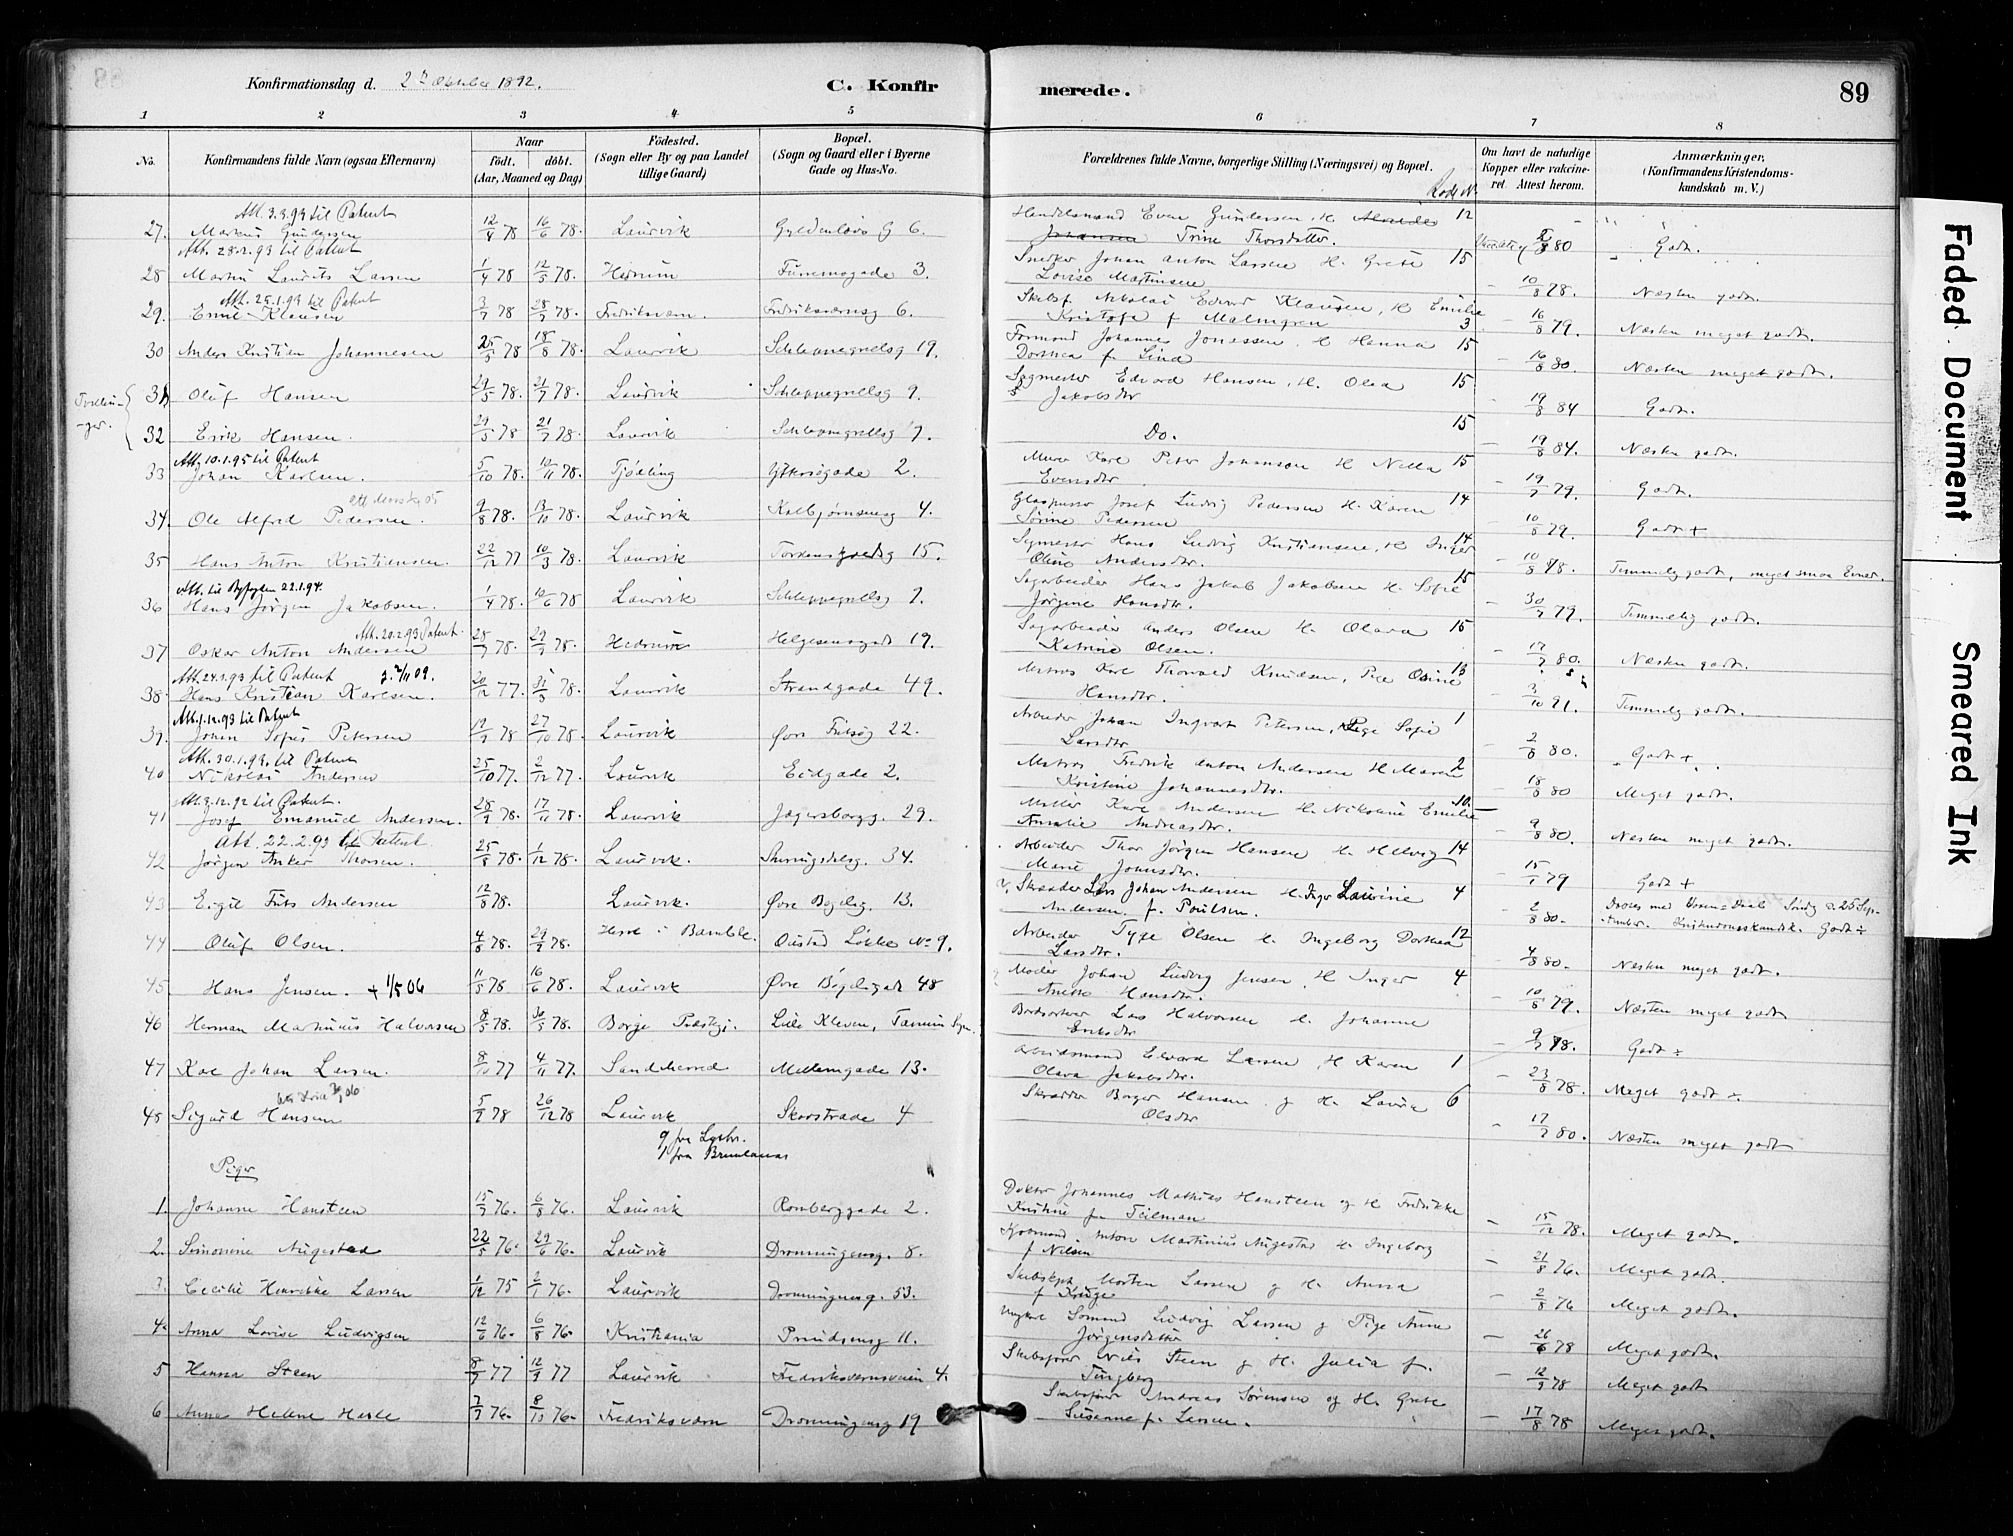 Konfirmationsdag d. 2 Oktober 1892.
C. Konfirmerede.
89
1 2 3 4 5 6 7 8
No.
Konfirmandens fulde Navn (ogsaa Efternavn)
Naar
født. døbt.
(Aar, Maaned og Dag)
Fødested.
(Sogn eller By og paa Landet tillige Gaard)
Bopæl.
(Sogn og Gaard eller i Byerne Gade og Hus-No.
Forældrenes fulde Navne, borgerlige Stilling (Næringsvei) og Bopæl.
Rode N.
Om havt de naturlige Kopper eller vakcineret. Attest herom.
Anmærkninger,
(Konfirmandens Kristendomskundskab m. V.)
Att. 3.3.93 til Patent
27. Markus Gundersen 12/4 78 16/6 78. Laurvik Gyldenløvs G 6. Handelsmand Even Gundersen, H. Trine Thorsdatter. 12 80 Godt.
Att. 28.2.93 til Patent
28 Martin Laurits Larsen 1/4 78 12/5 78. Hedrum Furumogade 3. Snedker Johan Anton Larsen H. Grete Lovise Martinsen 15 10/8 78. Næsten godt.
Att. 25.1.93 til Patent
29. Emil Klausen 3/7 78 28/7 78. Fredriksværn. Fredriksværnsg 6. Skibsf. Nikolai Edvard Klausen, H. Emilie Kristofa f Malmgren 3 16/8 79. Næsten meget godt.
30 Anders Kristian Johannesen 25/5 78 18/8 78. Laurvik Schleppegrellsg 19. Formand Johannes Jonassen H Hanna Dorthea f. Lind 15 16/8 80. Næsten meget godt.
Tvillinger.
31 Oluf Hansen 29/5 78. 21/7 78. Laurvik Schleppegrellsg 9. Sagmester Edvard Hansen, H. Olea Jakobsdtr 15 19/8 84 Godt.
32 Erik Hansen. 29/5 78 21/7 78. Laurvik Schleppegrellsg 9. Do. 15 19/8 84. Næsten godt.
Att. 10.1.95 til Patent
33 Johan Karlsen. 5/10 78. 10/11 78. Tjølling gade 2. Murer Karl Peter Johansen H Nella Evensdtr 15 19/7 79. Godt.
34. Ole Alfred Pedersen. 9/8 78. 13/10 78. Laurvik Kalbjørnsensg 4. Glaspuster Josef Ludvig Pedersen H. Karen Sørine Pedersen 14 10/8 79. Godt +
35 Hans Anton Kristiansen. 22/12 77 10/3 78. Laurvik Tordenskjoldsg 15. Sagmester Hans Ludvig Kristiansen, H Inger Oline Andersdtr. 14 10/8 78. Temmelig godt, meget smaa Evner.
Att. til Byfogden 22.1.94.
36 Hans Jørgen Jakobsen. 1/4 78. 10/6 78 Laurvik Schleppegrellsg 7. Sagarbeider Hans Jakob Jakobsen H. Sofie Jørgine Hansdtr. 15 30/7 79. Temmelig godt.
Att. 20.2.93 Patent.
37 Oskar Anton Andersen 28/7 78. 29/9 78. Hedrum Helgesensgade 19. Sagarbeider Anders Olsen H. Olava Katrine Olsen. 15 17/7 80. Næsten godt.
Att. 24.1.93 til Patent
38. Hans Kristian Karlsen. 20/12 77. 31/3 78. Laurvik Strandgade 49. Matros Karl Thorvald Knudsen, Pige Oline Hansdtr. 13 3/10 91. Temmelig godt.
Att. 1.12.93 til Patent
39. Johan Sofus Petersen 19/9 78 27/10 78. Laurvik Øvre Fritsøg 22. Arbeider Johan Ingvart Petersen, Pige Sofie Larsdtr 1 2/8 80. Godt +
Att. 30.1.93. til Patent
40 Nikolai Andersen 25/10 77. 2/12 77. Laurvik Eidgade 2. Matros Fredrik Anton Andersen H Maren Kristine Johannesdtr. 2 18/8 80 Meget godt.
Att. 3.12.92 til Patent.
41 Josef Emanuel Andersen. 28/9 78. 17/11 78. Laurvik Jegersborgg. 29. Møller Karl Andersen H. Nikoline Emilie Amalie Andreasdtr. 10 9/8 80. Næsten meget godt.
Att. 22.2.93 til Patent.
42 Jørgen Anker Thorsen. 25/8 78. 1/12 78. Laurvik. 34. Arbeider Thor Jørgen Hansen H. Helvig Marie Johnsdtr. 14 15/1 79 Godt +
43 Eigil Frits Andersen 12/8 78. Laurvik. Øvre Bøgelig. 13. Skræder Lars Johan Andersen H. Inger Laurine Andersen f. Poulsen. 4 2/8 80. Søndg d. 25 September. Godt ÷
44 Oluf Olsen. 4/8 78. 29/9 78. i Bamble. Løkke No 9. Arbeider Tyge Olsen H. Ingeborg Dorthea Larsdtr. 12 4/8 80. Næsten meget godt.
45. Hans Jensen. + 1/5 06 11/5 78 16/6 78. Laurvik Øvre Bøgeligade 48 Møller Johan Ludvig Jensen, H Inger Anette Hansdtr. 4 10/8 79. Næsten meget godt
46 Herman Markusius Halvorsen 8/5 78. 30/5 78. Borge Præstgj. Lille Kleven, Tanum Sogn. Lars Halvorsen H. Johanne Eriksdtr 9/7 78. Godt ÷
47 Karl Johan Larsen. 8/10 77 4/11 77. Sandeherred Mellemgade 13. Arbeidsmand Edvard Larsen, H Karen Olava Jakobsdtr. 1 23/8 78. Meget godt ÷
48 Sigurd Hansen 5/9 78 26/12 78 Laurvik Skovstræde 4 Skrædder Borger Hansen og H. Lovise Olsdtr 6 17/7 80. Næsten meget godt
1 fra Brunlanæs
Piger
1. Johanne Hansteen 15/7 76. 6/8 76. Laurvik Romberggade 2. Doktor Johannes Mathias Hansteen og H Fredrikke Kristine f. Teilman 15/12 78. Meget godt.
2. Simonine Augestad 22/5 76. 29/6 76. Laurvik Dronningensg. 8. Kjøbmand Anton Martinius Augestad H. Ingeborg f Nilsen 21/8 76. Meget godt.
3. Cecilie Henrikke Larsen 1/12 75 2/1 76. Laurvik Dronningensg. 53. Morten Larsen og H. Anna f Krüge 2/8 76 Meget godt.
4. Anna Lovise Ludvigsen 12/6 76. 6/8 76. Kristiania Prindsensg 11. Ugift Sømand Ludvig Larsen og Pige Anne Jørgensdatter 26/6 78 Meget godt.
5 Hanna Steen 8/7 77 12/9 77 Laurvik Fredriksværnsveien 4. Skibsfører Nils Steen og H. Julia f. Tingberg 12/9 78 Meget godt
6 Anna Helene 7/7 76. 8/10 76. Fredriksværn Dronningensg 19 Skibsfører Andreas Sørensen og H. Grete Susanne f. Larsen. 17/8 78 Meget godt.
Faded Document
Smeared Ink